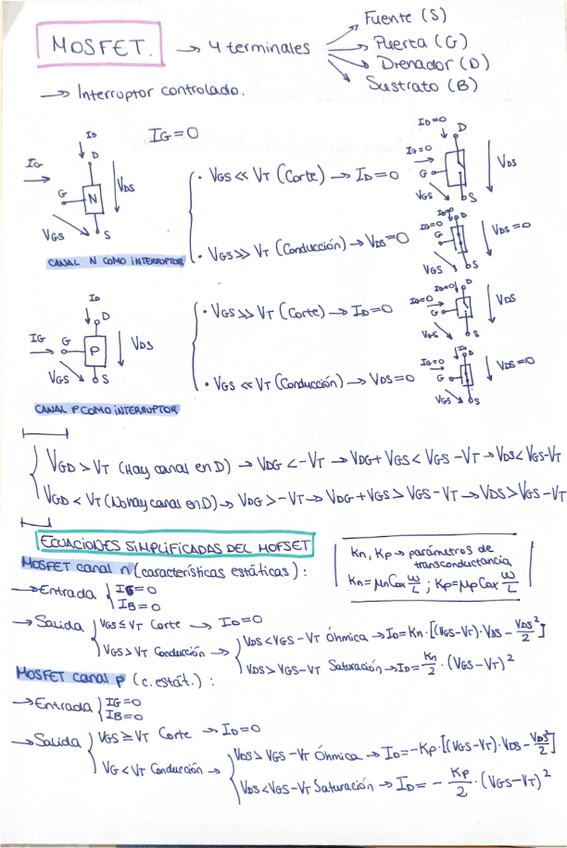 MOSFET. → 4 terminales
Fuente (S)
Puerta (G)
Drenador (D)
Sustrato (B)
→ Interruptor controlado.
IG=0
ID
IG
D
G
N
VDS
VGS
S
CANAL N COMO INTERRUPTOR
· VGS << VT (Corte) → ID=0
ID=0
D
IG=0
G
VDS
VGS
S
· VGS >> VT (Conducción) → VDS=0
D
IG=0
G
VDS=0
VGS
S
ID
D
IG
G
P
VDS
VGS
S
CANAL P COMO INTERRUPTOR
· VGS >> VT (Corte) → ID=0
ID=0
D
IG=0
G
VDS
VGS
S
· VGS << VT (Conducción) → VDS=0
ID
D
IG=0
G
VDS=0
VGS
S
VGD > VT (Hay canal en D) → VDG <-VT → VDG+ VGS < VGS -VT → VDS < VGS-VT
VGD < VT (No hay canal en D) → VDG >-VT → VDG +VGS > VGS-VT → VDS > VGS-VT
ECUACIONES SIMPLIFICADAS DEL MOFSET
Kn, Kp → parámetros de
transconductancia
Kn = μnCox W/L ; Kp = μpCox W/L
MOSFET canal n (características estáticas) :
→ Entrada { IG=0
IB=0
→ Salida { VGS ≤ VT Corte → ID=0
VGS > VT Conducción → { VDS < VGS-VT Óhmica → ID = Kn · [(VGS-VT)· VDS - VDS²/2]
VDS > VGS-VT Saturación → ID = Kn/2 · (VGS-VT)²
MOSFET canal p (c. estát.) :
→ Entrada { IG=0
IB=0
→ Salida { VGS ≥ VT Corte → ID=0
VG < VT Conducción → { VDS > VGS-VT Óhmica → ID = -Kp · [(VGS-VT)· VDS - VDS²/2]
VDS < VGS-VT Saturación → ID = - Kp/2 · (VGS-VT)²